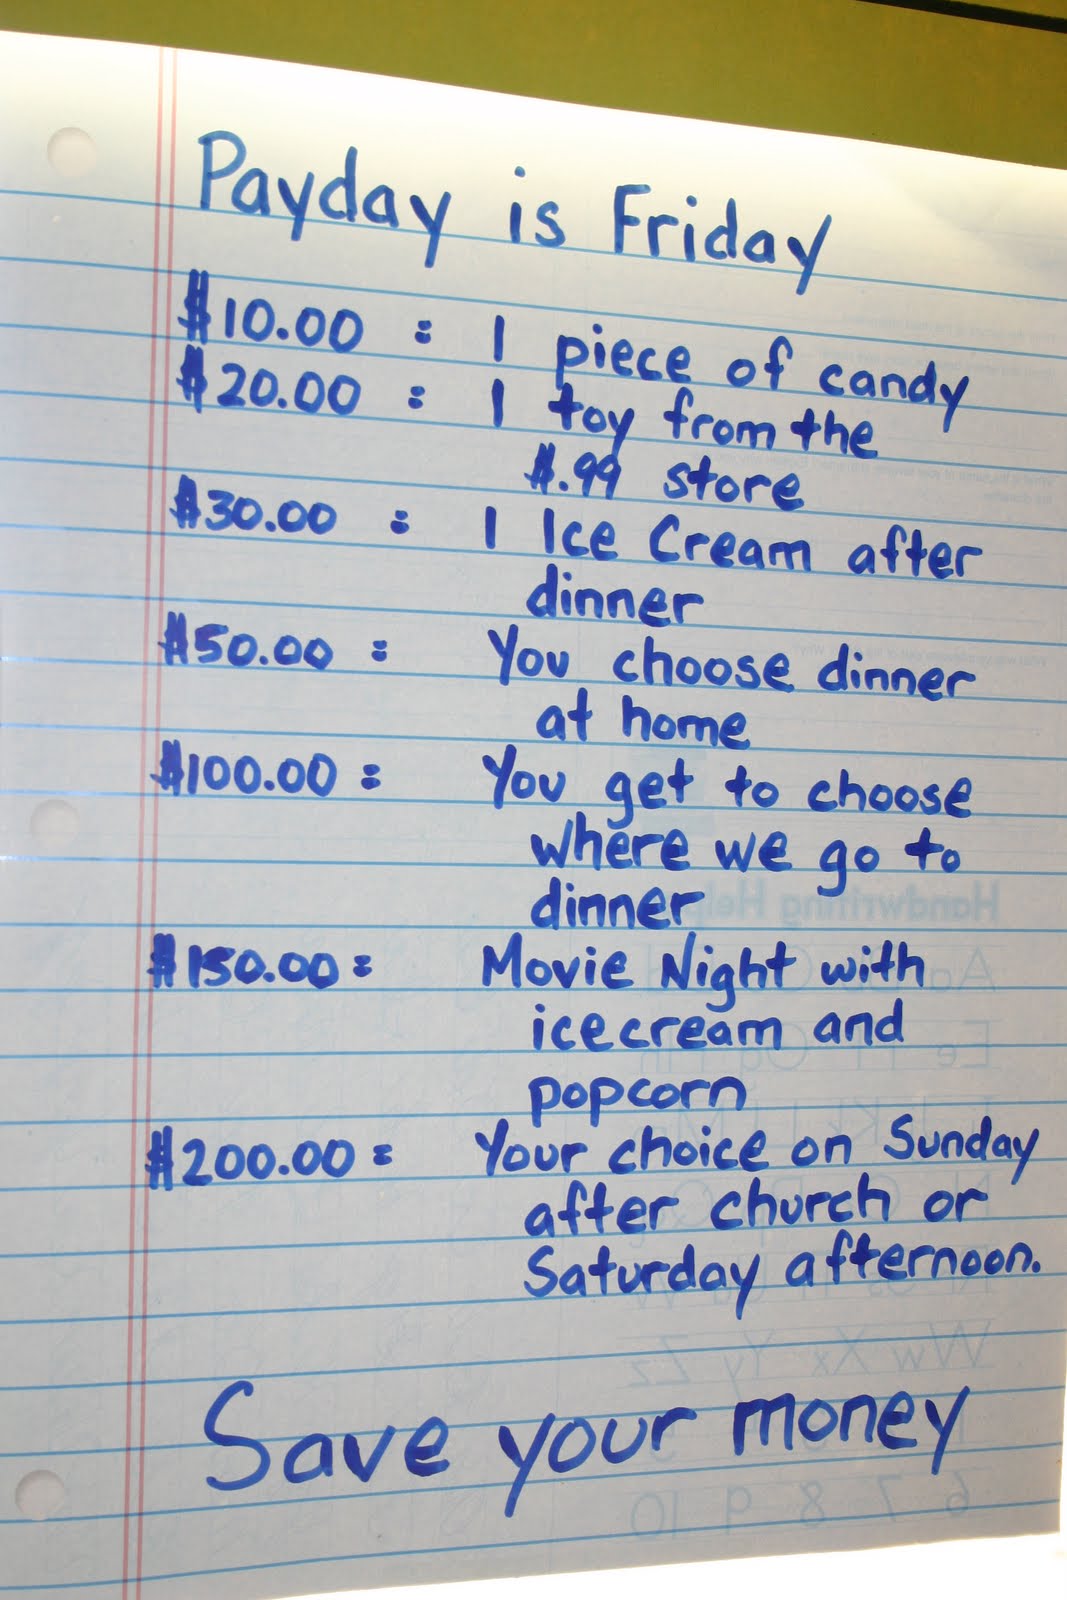 Payday is Friday
$10.00 : 1 piece of candy
$20.00 : 1 toy from the
$.99 store
$30.00 : 1 Ice Cream after
dinner
$50.00 : You choose dinner
at home
$100.00 : You get to choose
where we go to
dinner
$150.00 : Movie Night with
icecream and
popcorn
$200.00 : Your choice on Sunday
after church or
Saturday afternoon.
Save your money